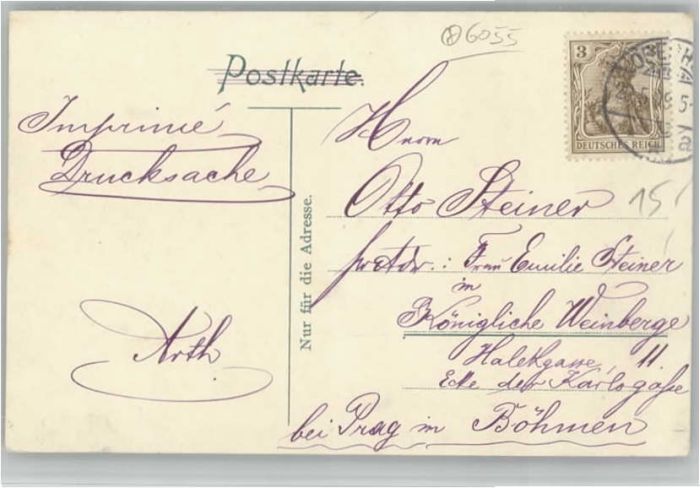 6055
Postkarte.
3
DEUTSCHES REICH
Imprimé
Drucksache
Arth
Nur für die Adresse.
Herrn
Otto Steiner
Frau Emilie Steiner
in
Königliche Weinberge
Halekgasse, 11.
Ecke der Karlsgasse
bei Prag in Böhmen
15